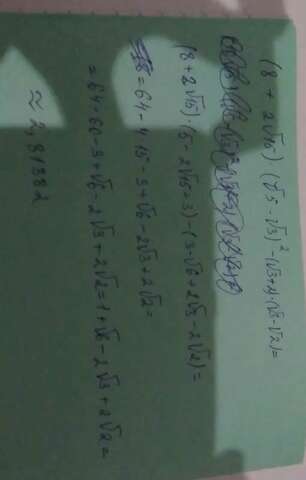 (8 + 2√15) (√5 - √3)² - (√3+2)·(√3-√2)=
(8+2√15)·(5-2√15+3)-(3-√6+2√3-2√2)=
=64-4·15-3+√6-2√3+2√2=
=64-60-3+√6-2√3+2√2=1+√6-2√3+2√2=
≈2,81382